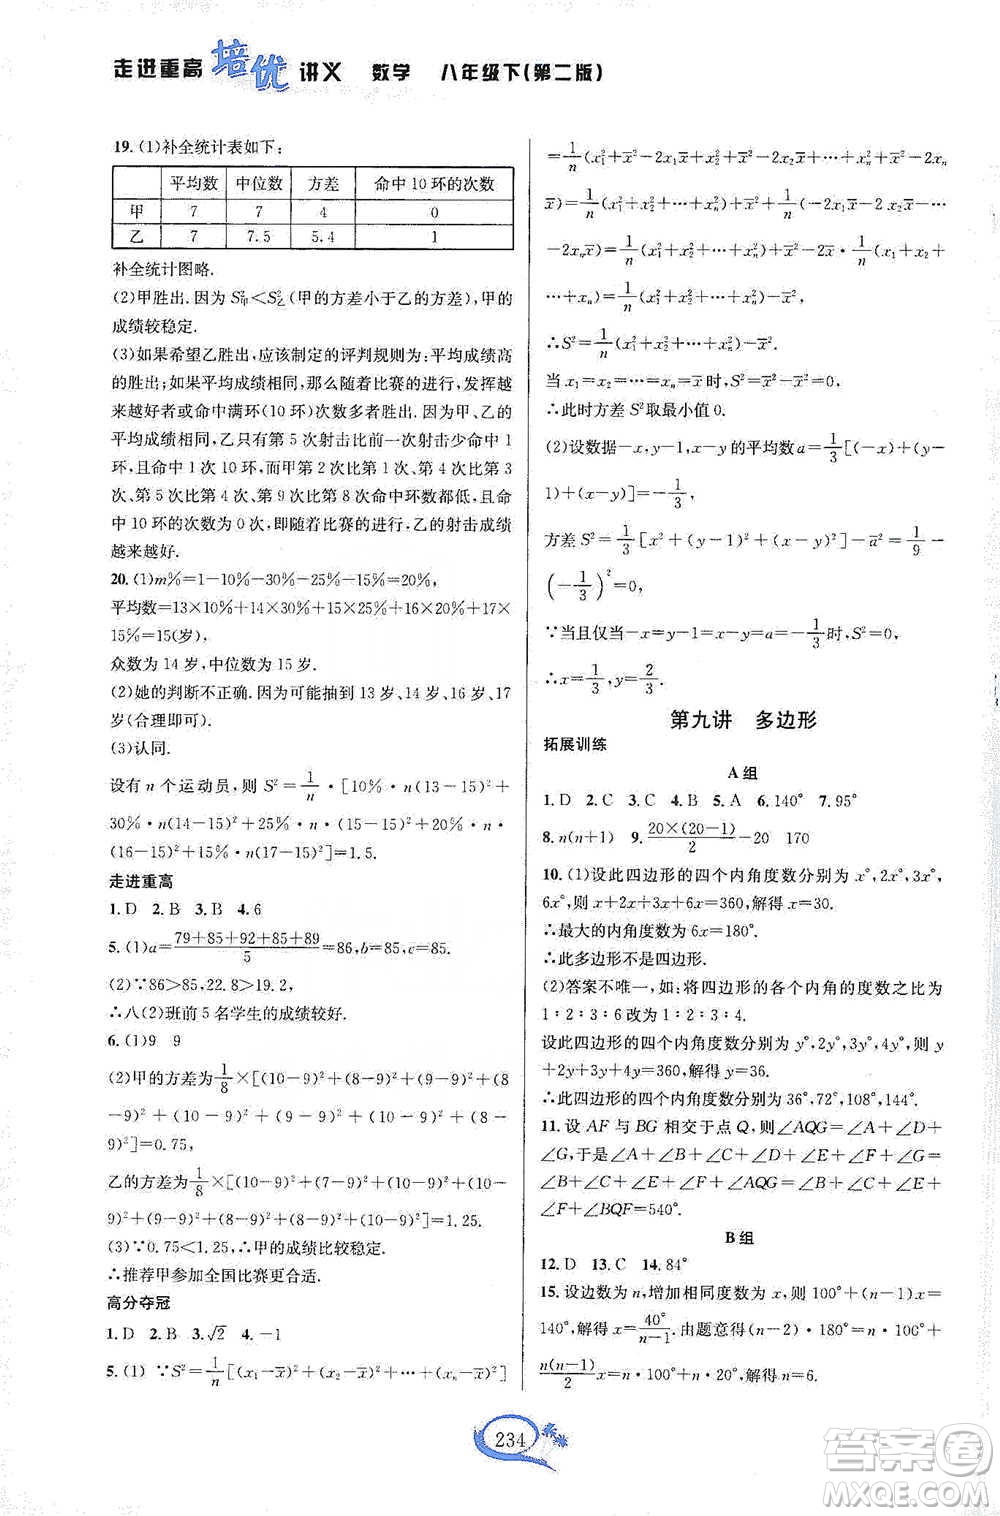 走进重高 培优 讲义 数学 八年级下(第二版)
19. (1)补全统计表如下:
平均数 中位数 方差 命中 10 环的次数
甲 7 7 4 0
乙 7 7.5 5.4 1
补全统计图略.
(2)甲胜出. 因为 S²甲<S²乙(甲的方差小于乙的方差),甲的
成绩较稳定.
(3)如果希望乙胜出,应该制定的评判规则为:平均成绩高
的胜出;如果平均成绩相同,那么随着比赛的进行,发挥越
来越好或命中满环(10 环)次数多者胜出. 因为甲、乙的
平均成绩相同,乙只有第 5 次射击比前一次射击少命中 1
环,且命中 1 次 10 环,而甲第 2 次比第 1 次、第 4 次比第 3
次、第 5 次比第 4 次、第 9 次比第 8 次命中环数都低,且命
中 10 环的次数为 0 次,即随着比赛的进行,乙的射击成绩
越来越好.
20. (1)m%=1-10%-30%-25%-15%=20%,
平均数=13×10%+14×30%+15×25%+16×20%+17×
15%=15(岁),
众数为 14 岁,中位数为 15 岁.
(2)她的判断不正确. 因为可能抽到 13 岁、14 岁、16 岁、17
岁(合理即可).
(3)认同.
设有 n 个运动员,则 S²=1/n·[10%·n(13-15)²+
30%·n(14-15)²+25%·n·(15-15)²+20%·n·
(16-15)²+15%·n(17-15)²]=1.5.
走进重高
1. D 2. B 3. B 4. 6
5. (1)a=(79+85+92+85+89)/5=86,b=85,c=85.
(2)∵86>85,22.8>19.2,
∴八(2)班前 5 名学生的成绩较好.
6. (1)9 9
(2)甲的方差为1/8×[(10-9)²+(8-9)²+(9-9)²+(8
-9)²+(10-9)²+(9-9)²+(10-9)²+(8-9)²]=0.75,
乙的方差为1/8×[(10-9)²+(7-9)²+(10-9)²+(10-
9)²+(9-9)²+(8-9)²+(8-9)²+(10-9)²]=1.25.
(3)∵0.75<1.25,∴甲的成绩比较稳定.
∴推荐甲参加全国比赛更合适.
高分夺冠
1. D 2. B 3. √2 4. -1
5. (1) ∵S²=1/n[(x₁-x̄)²+(x₂-x̄)²+…+(xₙ-x̄)²]
=1/n(x₁²+x̄²-2x₁x̄+x₂²+x̄²-2x₂x̄+…+xₙ²+x̄²-2xₙ
x̄)=1/n(x₁²+x₂²+…+xₙ²)+x̄²+1/n(-2x₁x̄-2x₂x̄-…
-2xₙx̄)=1/n(x₁²+x₂²+…+xₙ²)+x̄²-2x̄·1/n(x₁+x₂+…
+xₙ)=1/n(x₁²+x₂²+…+xₙ²)+x̄²-2x̄²
∴S²=1/n(x₁²+x₂²+…+xₙ²)-x̄².
当 x₁=x₂=…=xₙ=x̄时,S²=x̄²-x̄²=0,
∴此时方差 S²取最小值 0.
(2)设数据-x,y-1,x-y 的平均数a=1/3[(-x)+(y-
1)+(x-y)]=-1/3,
方差 S²=1/3[x²+(y-1)²+(x-y)²]-a²=1/9-
(-1/3)²=0,
∵当且仅当-x=y-1=x-y=a=-1/3时,S²=0,
∴x=1/3,y=2/3.
第九讲 多边形
拓展训练
A 组
1. D 2. C 3. C 4. B 5. A 6. 140° 7. 95°
8. n(n+1) 9. 20×(20-1)/2-20 170
10. (1)设此四边形的四个内角度数分别为 x°,2x°,3x°,
6x°,则 x+2x+3x+6x=360,解得 x=30.
∴最大的内角度数为 6x=180°.
∴此多边形不是四边形.
(2)答案不唯一,如:将四边形的各个内角的度数之比为
1∶2∶3∶6 改为 1∶2∶3∶4.
设此四边形的四个内角度数分别为 y°,2y°,3y°,4y°,则 y
+2y+3y+4y=360,解得 y=36.
∴此四边形的四个内角度数分别为 36°,72°,108°,144°.
11. 设 AF 与 BG 相交于点 Q,则∠AQG=∠A+∠D+
∠G,于是∠A+∠B+∠C+∠D+∠E+∠F+∠G=∠B
+∠C+∠E+∠F+∠AQG=∠B+∠C+∠E+
∠F+∠BQF=540°.
B 组
12. D 13. C 14. 84°
15. 设边数为 n,增加相同度数为 x,则 100°+(n-1)x=
140°,解得 x=40°/(n-1). 由题意得(n-2)·180°=n·100°+
n(n-1)/2 x=n·100°+n·20°,解得 n=6.
234
答案圈
MXQE.COM